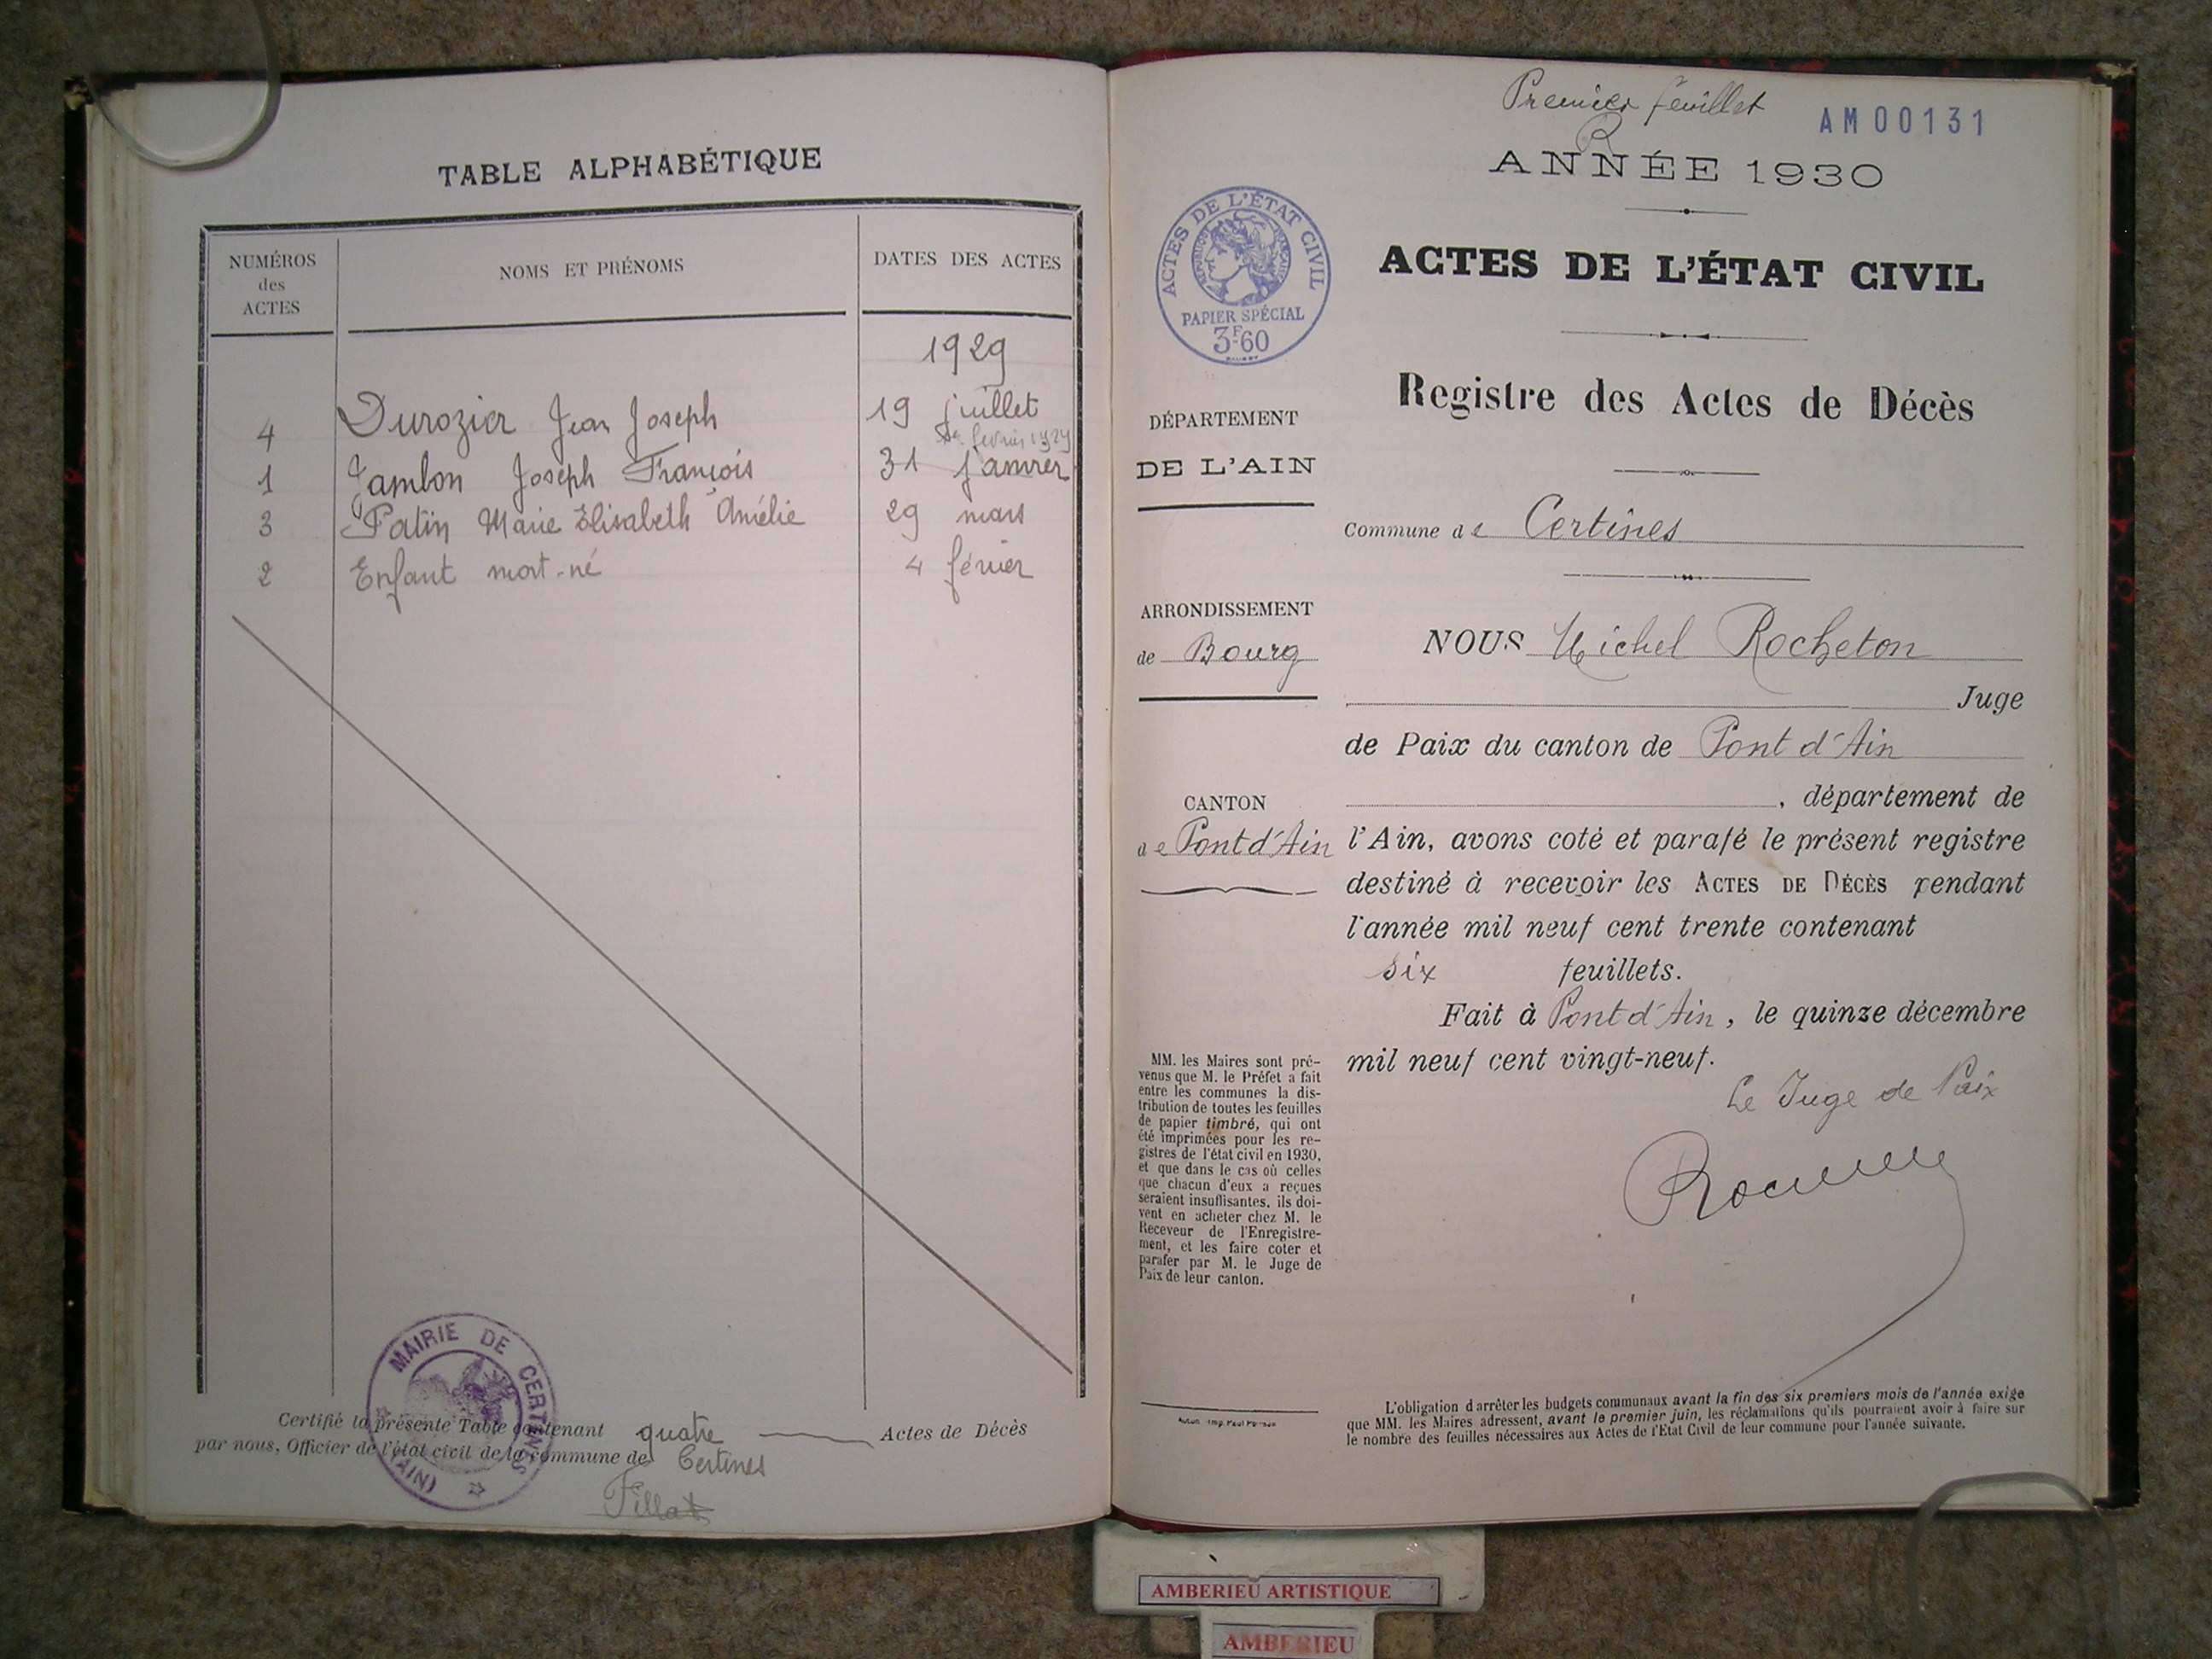 TABLE ALPHABÉTIQUE
NUMÉROS
des
ACTES
NOMS ET PRÉNOMS
DATES DES ACTES
1929
4 Durozier Jean Joseph 19 juillet
février 1929
1 Jambon Joseph François 31 janvier
3 Patin Marie Elisabeth Amélie 29 mars
2 Enfant mort-né 4 février
Certifié la présente Table contenant quatre Actes de Décès
par nous, Officier de l'état civil de la commune de Certines
Fillat
MAIRIE DE CERTINES
(AIN)
Premier feuillet
R
AM00131
ANNÉE 1930
ACTES DE L'ÉTAT CIVIL
RÉPUBLIQUE FRANÇAISE
PAPIER SPÉCIAL
3F60
ACTES DE L'ÉTAT CIVIL
Registre des Actes de Décès
DÉPARTEMENT
DE L'AIN
Commune de Certines
ARRONDISSEMENT
de Bourg
CANTON
de Pont d'Ain
NOUS Michel Rocheton
Juge
de Paix du canton de Pont d'Ain
, département de
l'Ain, avons coté et parafé le présent registre
destiné à recevoir les ACTES DE DÉCÈS pendant
l'année mil neuf cent trente contenant
six feuillets.
Fait à Pont d'Ain, le quinze décembre
mil neuf cent vingt-neuf.
Le Juge de Paix
MM. les Maires sont pré-
venus que M. le Préfet a fait
entre les communes la dis-
tribution de toutes les feuilles
de papier timbré, qui ont
été imprimées pour les re-
gistres de l'état civil en 1930,
et que dans le cas où celles
que chacun d'eux a reçues
seraient insuffisantes, ils doi-
vent en acheter chez M. le
Receveur de l'Enregistre-
ment, et les faire coter et
parafer par M. le Juge de
Paix de leur canton.
L'obligation d'arrêter les budgets communaux avant la fin des six premiers mois de l'année exige
que MM. les Maires adressent, avant le premier juin, les réclamations qu'ils pourraient avoir à faire sur
le nombre des feuilles nécessaires aux Actes de l'Etat Civil de leur commune pour l'année suivante.
AMBERIEU ARTISTIQUE
AMBERIEU